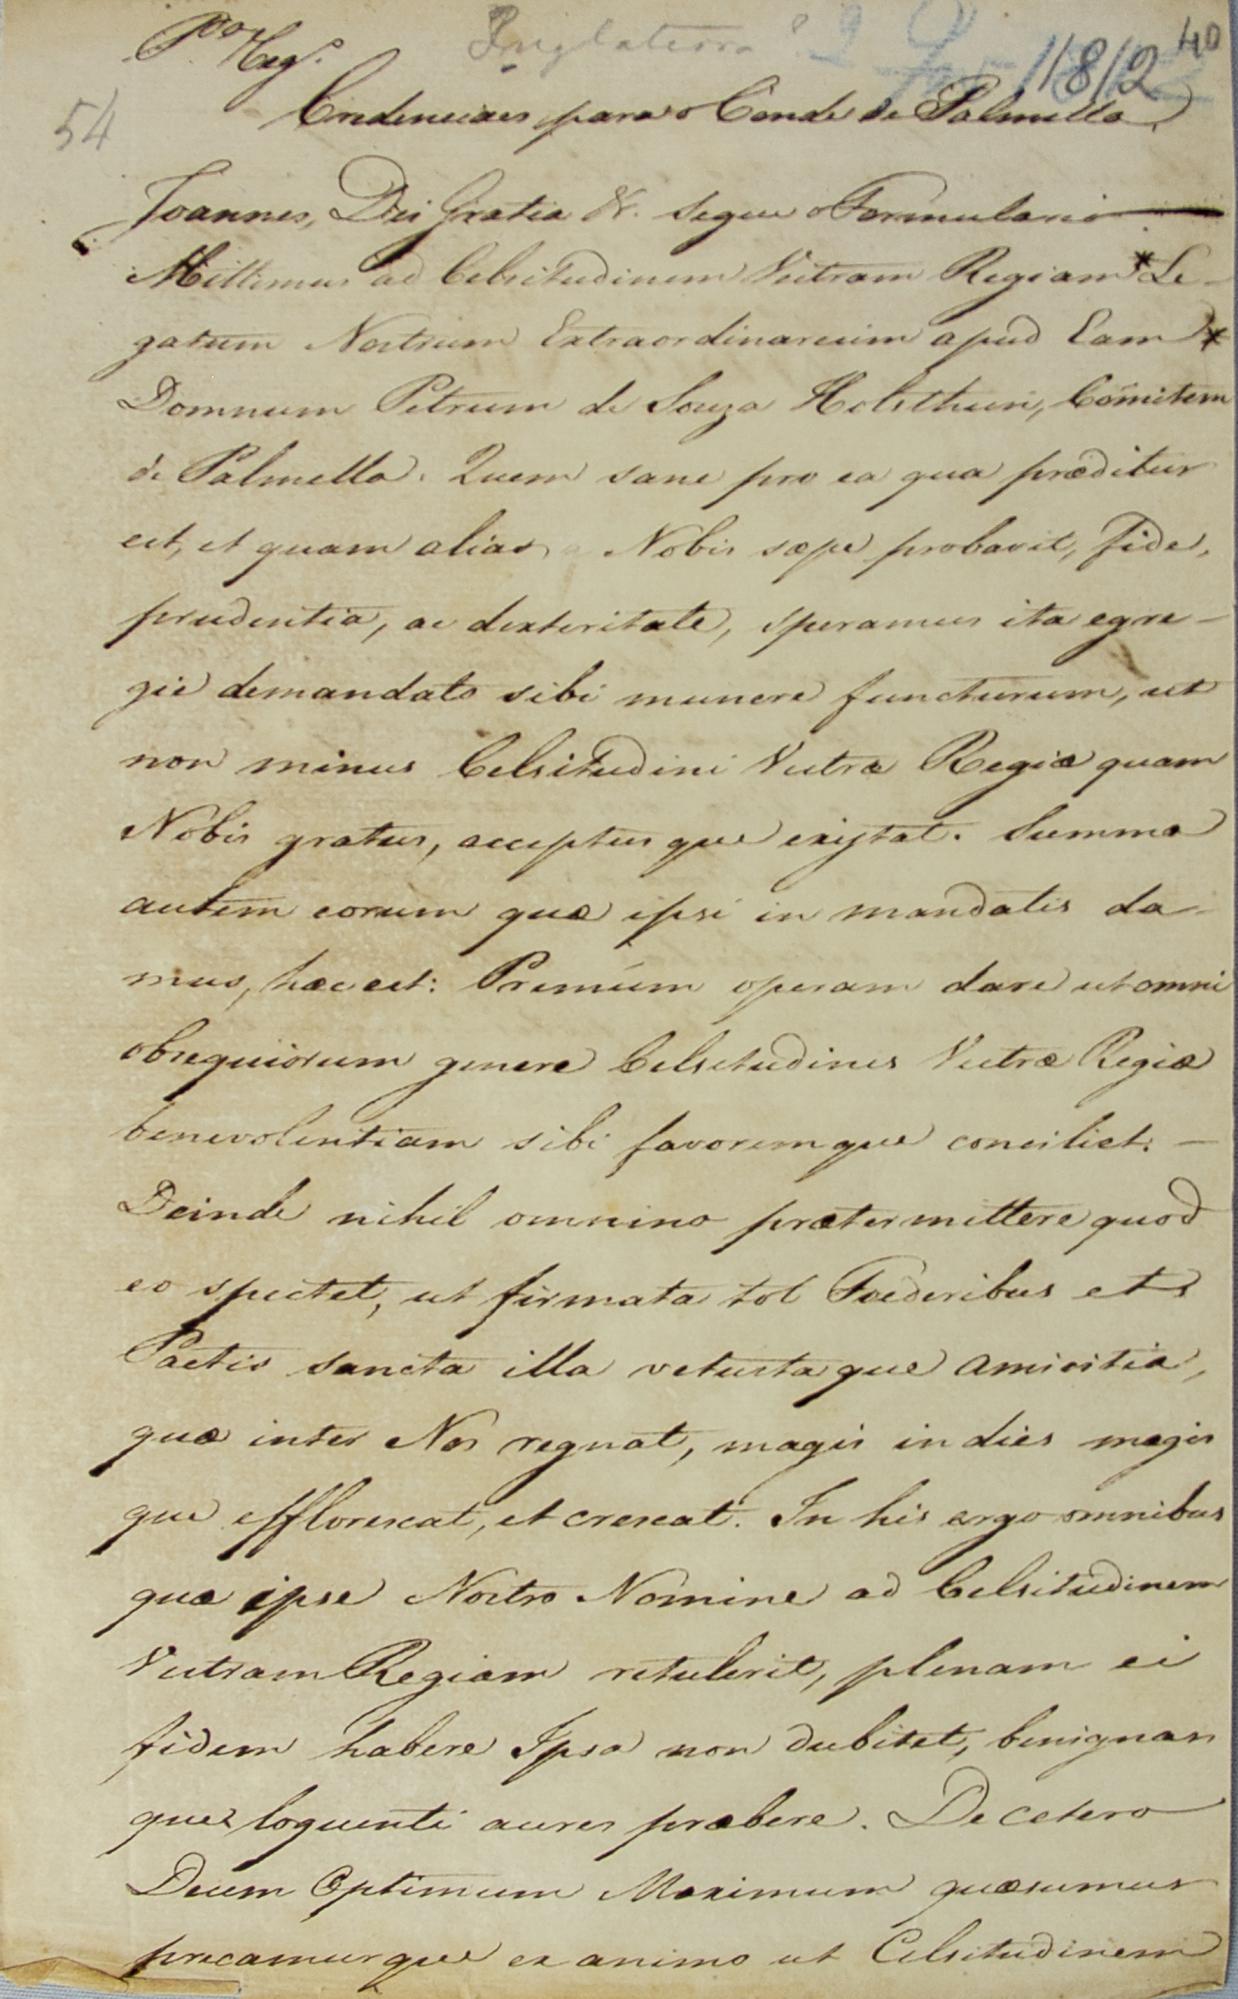 Inglaterra
40
P.do Reg.o
1812
54
Credenciaes para o Conde de Palmella
Joannes, Dei Gratia &. segue o Formulario
Mittimus ad Celsitudinem Vestram Regiam * Le-
gatum Nostrum Extraordinarium apud Eam *
Domnum Petrum de Souza Holsthein, Comitem
de Palmella. Quem sane pro ea qua præditus
est, et quam alias Nobis sæpe probavit, fide,
prudentia, ac dexteritate, speramus ita egre-
gie demandato sibi munere functurum, ut
non minus Celsitudini Vestræ Regiæ quam
Nobis gratus, acceptusque existat. Summa
autem eorum quæ ipsi in mandatis da-
mus, hæc est: Primum operam dare ut omni
obsequiorum genere Celsitudinis Vestræ Regiæ
benevolentiam sibi favoremque conciliet: -
Deinde nihil omnino prætermittere quod
eo spectet, ut firmata tot Foederibus et
Pactis sancta illa vetustaque amicitia,
quæ inter Nos regnat, magis in dies magis
que efflorescat, et crescat. In his ergo omnibus
quæ ipse Nostro Nomine ad Celsitudinem
Vestram Regiam retulerit, plenam ei
fidem habere Ipsa non dubitet, benignas
que loquenti aures præbere. De cetero
Deum Optimum Maximum quæsumus
precamurque ex animo ut Celsitudinem